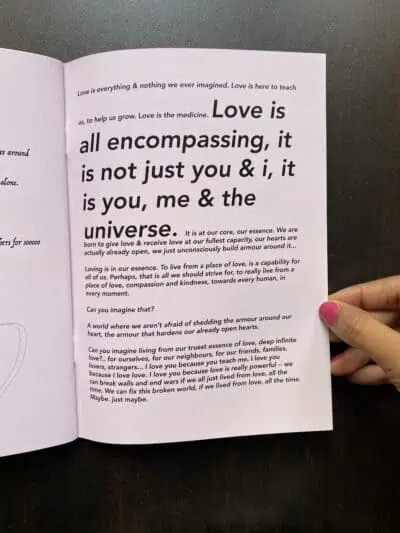 re around
alone.
for soooo
Love is everything & nothing we ever imagined. Love is here to teach
us, to help us grow. Love is the medicine. Love is
all encompassing, it
is not just you & i, it
is you, me & the
universe. It is at our core, our essence. We are
born to give love & receive love at our fullest capacity, our hearts are
actually already open, we just unconsciously build armour around it...
Loving is in our essence. To live from a place of love, is a capability for
all of us. Perhaps, that is all we should strive for, to really live from a
place of love, compassion and kindness, towards every human, in
every moment.
Can you imagine that?
A world where we aren't afraid of shedding the armour around our
heart, the armour that hardens our already open hearts.
Can you imagine living from our truest essence of love, deep infinite
love?.. for ourselves, for our neighbours, for our friends, families,
lovers, strangers... I love you because you teach me. I love you
because I love love. I love you because love is really powerful – we
can break walls and end wars if we all just lived from love, all the
time. We can fix this broken world, if we lived from love, all the time.
Maybe. just maybe.